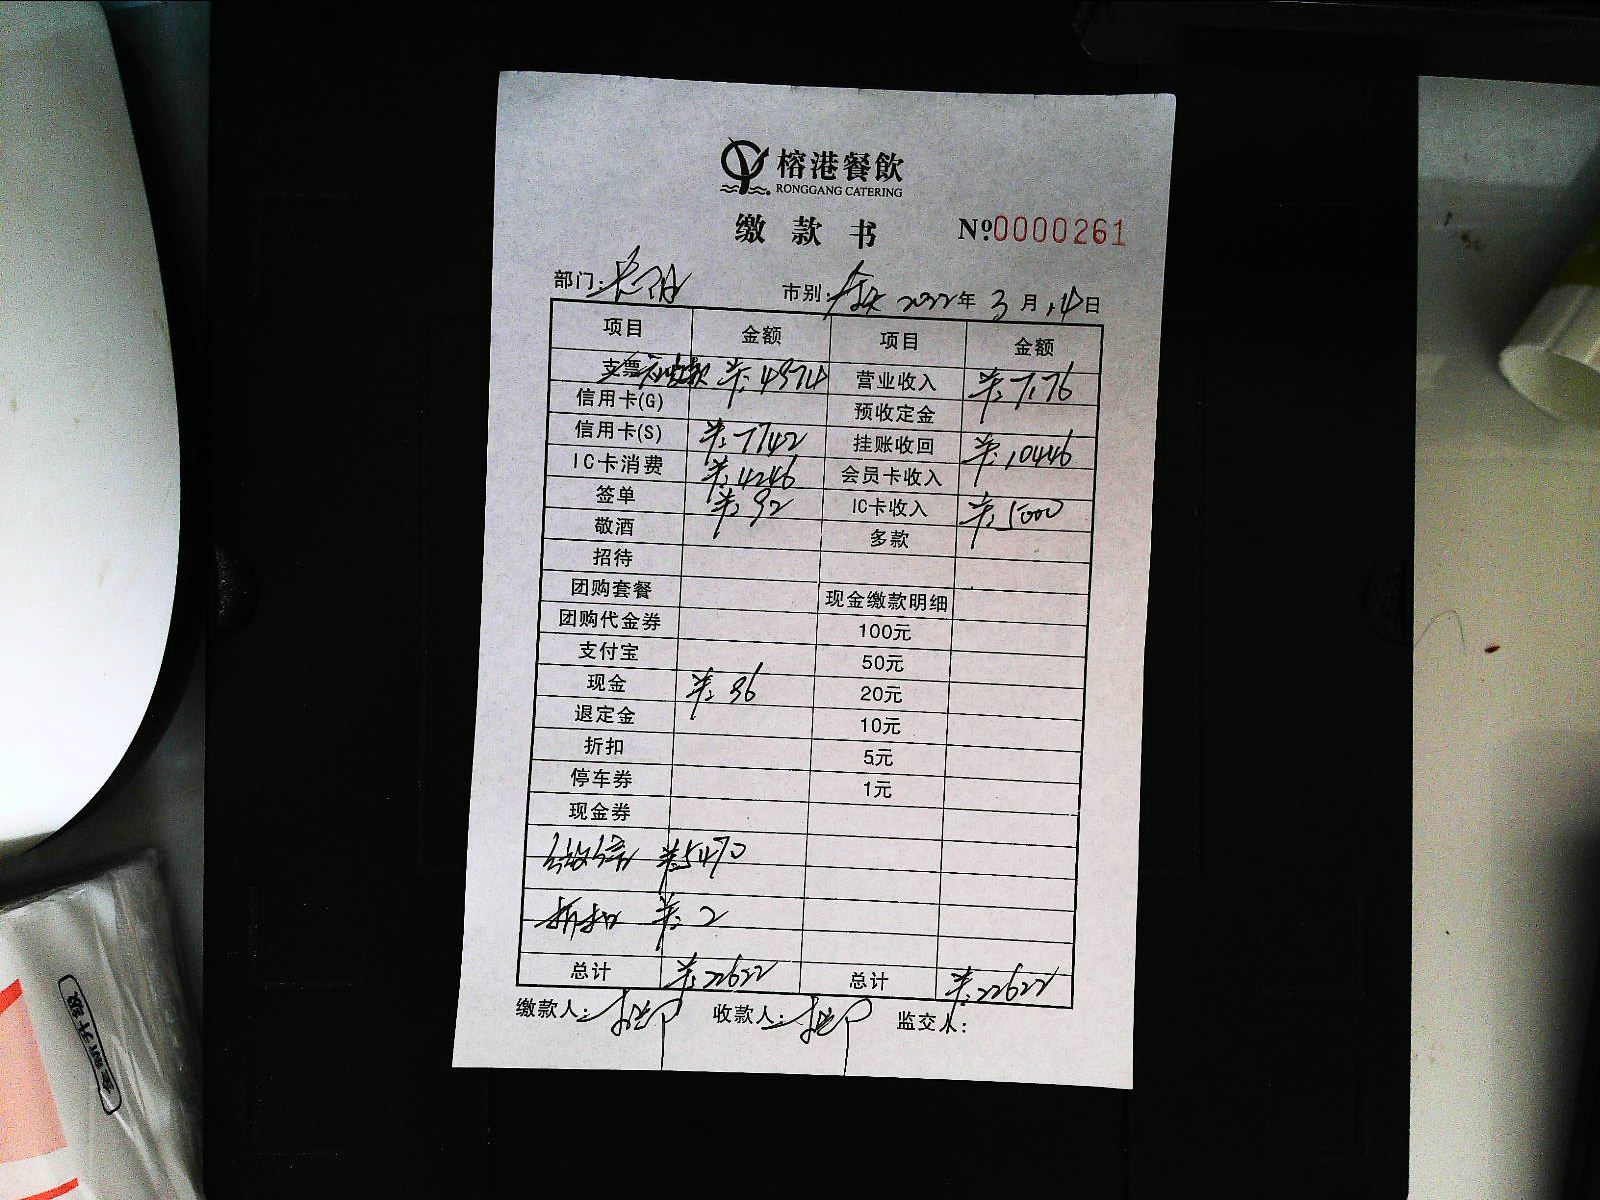 榕港餐飲
RONGGANG CATERING
缴款书 №0000261
部门: 市别: 全天 2022年 3月 14日
项目 金额 项目 金额
支票 应收款 ¥: 4974 营业收入 ¥: 7176
信用卡(G) 预收定金
信用卡(S) ¥: 7742 挂账收回 ¥: 10446
IC卡消费 ¥: 4246 会员卡收入
签单 ¥: 92 IC卡收入 ¥: 5000
敬酒 多款
招待
团购套餐 现金缴款明细
团购代金券 100元
支付宝 50元
现金 ¥: 96 20元
退定金 10元
折扣 5元
停车券 1元
现金券
¥: 5470
折扣 ¥: 2
总计 ¥: 22622 总计 ¥: 22622
缴款人: 收款人: 监交人:
金领升级